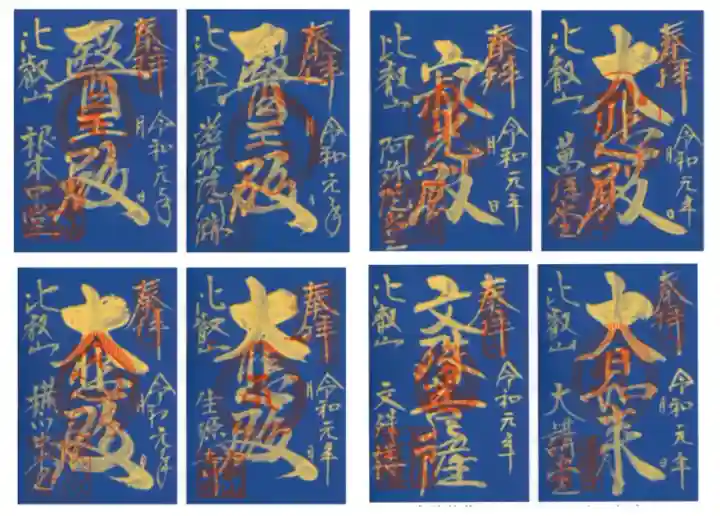 奉拝
医王殿
令和元年 月 日
比叡山 根本中堂
奉拝
医王殿
令和元年 月 日
比叡山 滋賀院門跡
奉拝
寂光殿
令和元年 月 日
比叡山 阿弥陀堂
奉拝
大悲殿
令和元年 月 日
比叡山 萬拝堂
奉拝
大悲殿
令和元年 月 日
比叡山 横川中堂
奉拝
大悲殿
令和元年 月 日
比叡山 生源寺
奉拝
文殊菩薩
令和元年 月 日
比叡山 文殊楼
奉拝
大日如来
令和元年 月 日
比叡山 大講堂